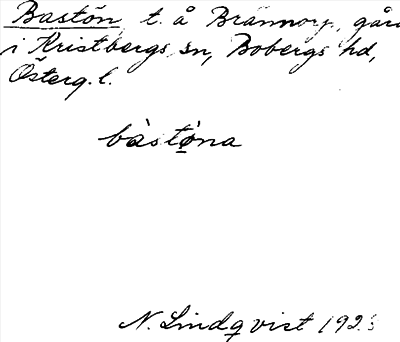 Bastön, t. å Brännorp, gård
i Kristbergs sn, Bobergs hd,
Österg. l.
bàstǿna
N. Lindqvist 192